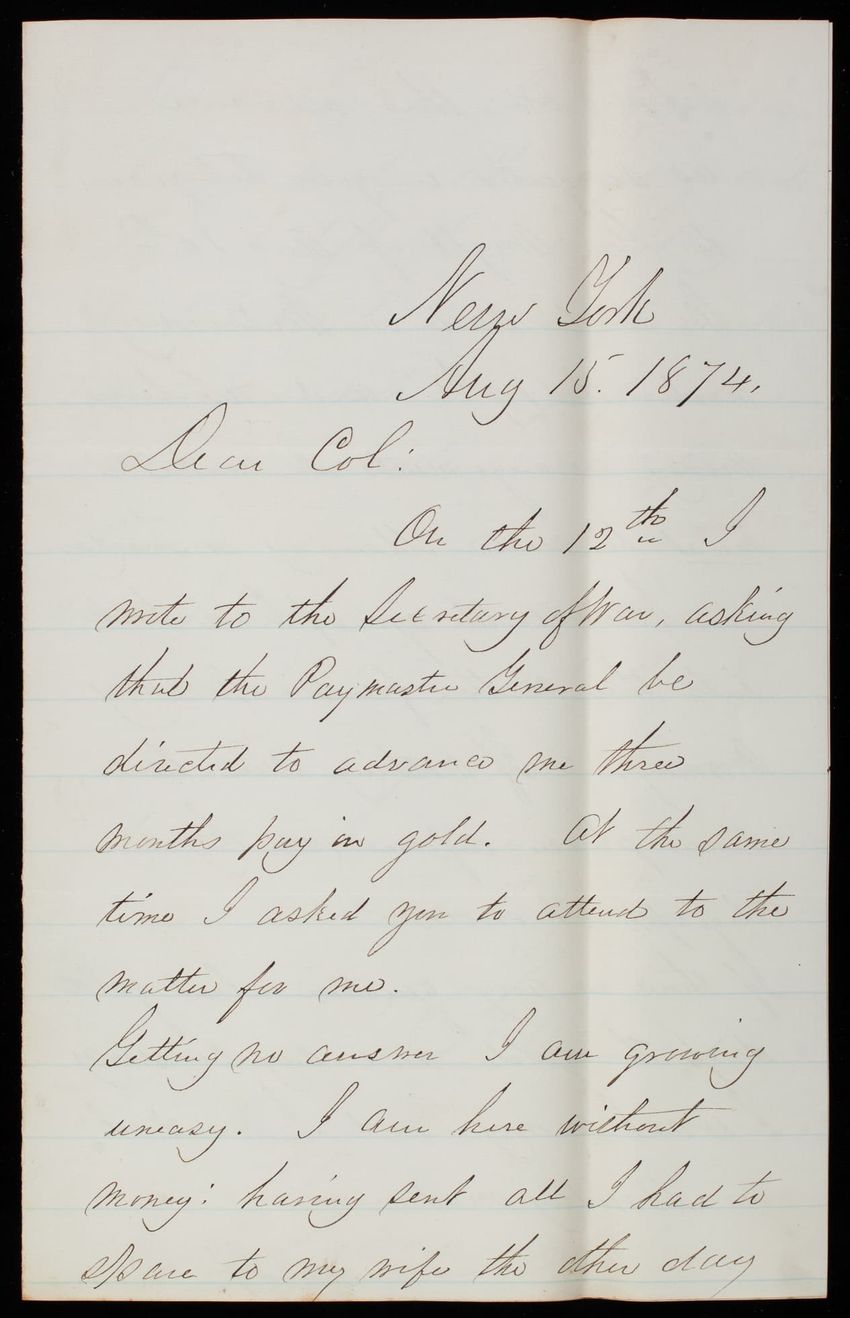 New York
Aug 15. 1874.
Dear Col:
On the 12th I
wrote to the Secretary of War, asking
that the Paymaster General be
directed to advance me three
months pay in gold. At the same
time I asked you to attend to the
matter for me.
Getting no answer I am growing
uneasy. I am here without
money: having sent all I had to
spare to my wife the other day